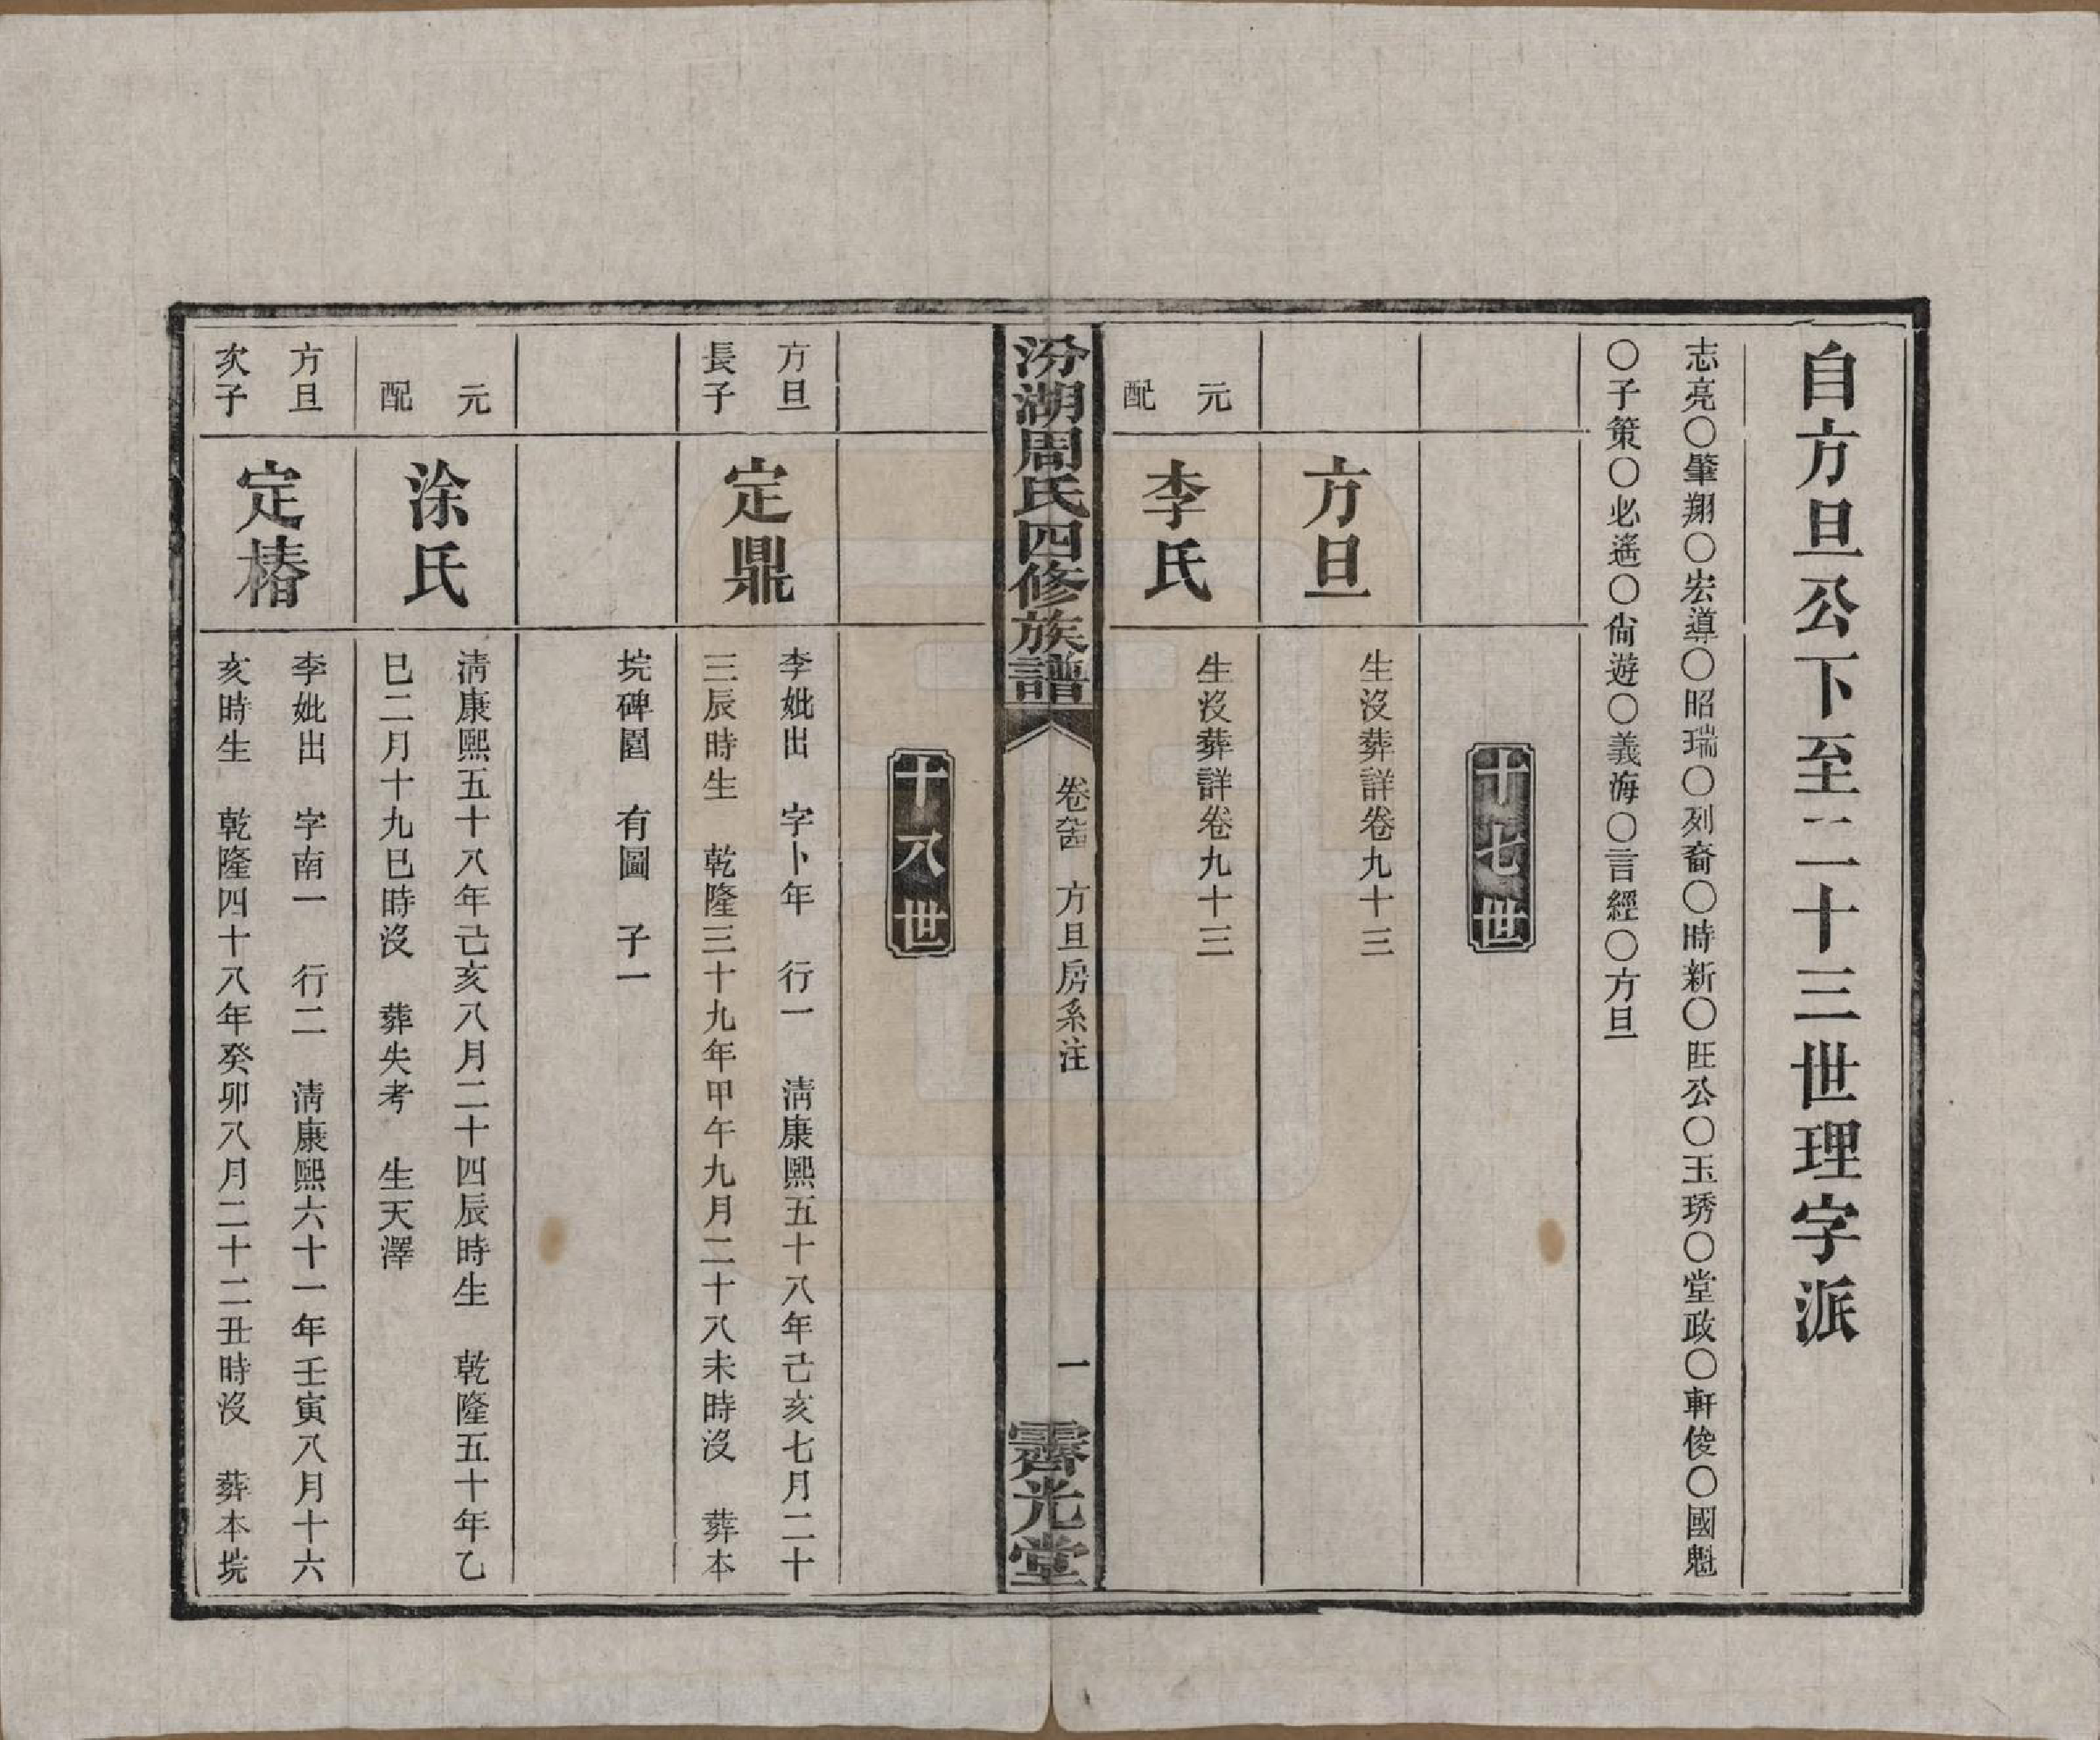 自方旦公下至二十三世理字派
志亮〇肇翔〇宏導〇昭瑞〇列裔〇時新〇旺公〇玉琇〇堂政〇軒俊〇國魁
〇子策〇必遙〇尙遊〇義海〇言經〇方旦
十七世
方旦
生沒葬詳卷九十三
元
配
李氏
生沒葬詳卷九十三
汾湖周氏四修族譜
卷 方旦房系注
一
霽光堂
十八世
方旦
長子
定鼎
李妣出 字卜年 行一 淸康熙五十八年己亥七月二十
三辰時生 乾隆三十九年甲午九月二十八未時沒 葬本
境碑圍 有圖 子一
元
配
涂氏
淸康熙五十八年己亥八月二十四辰時生 乾隆五十年乙
巳二月十九巳時沒 葬失考 生天澤
方旦
次子
定椿
李妣出 字南一 行二 淸康熙六十一年壬寅八月十六
亥時生 乾隆四十八年癸卯八月二十二丑時沒 葬本境